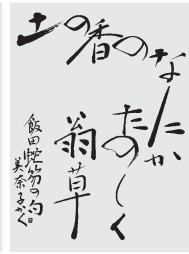 土の香のなにか
たのしく
翁草
飯田蛇笏の句
美奈子かく